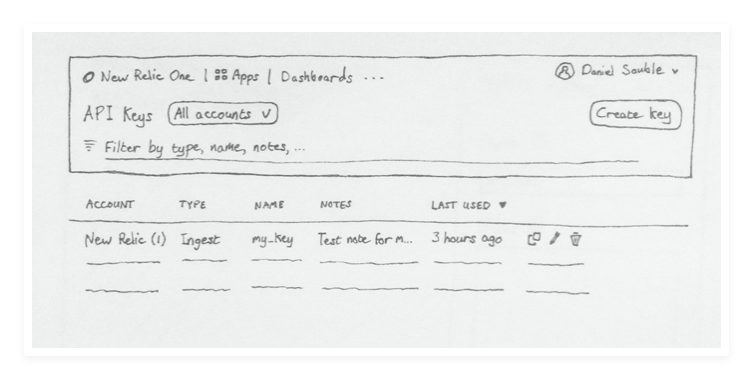 New Relic One | Apps | Dashboards ... Daniel Sauble v
API Keys All accounts v Create key
Filter by type, name, notes, ...
ACCOUNT TYPE NAME NOTES LAST USED ▼
New Relic (1) Ingest my_key Test note for m... 3 hours ago